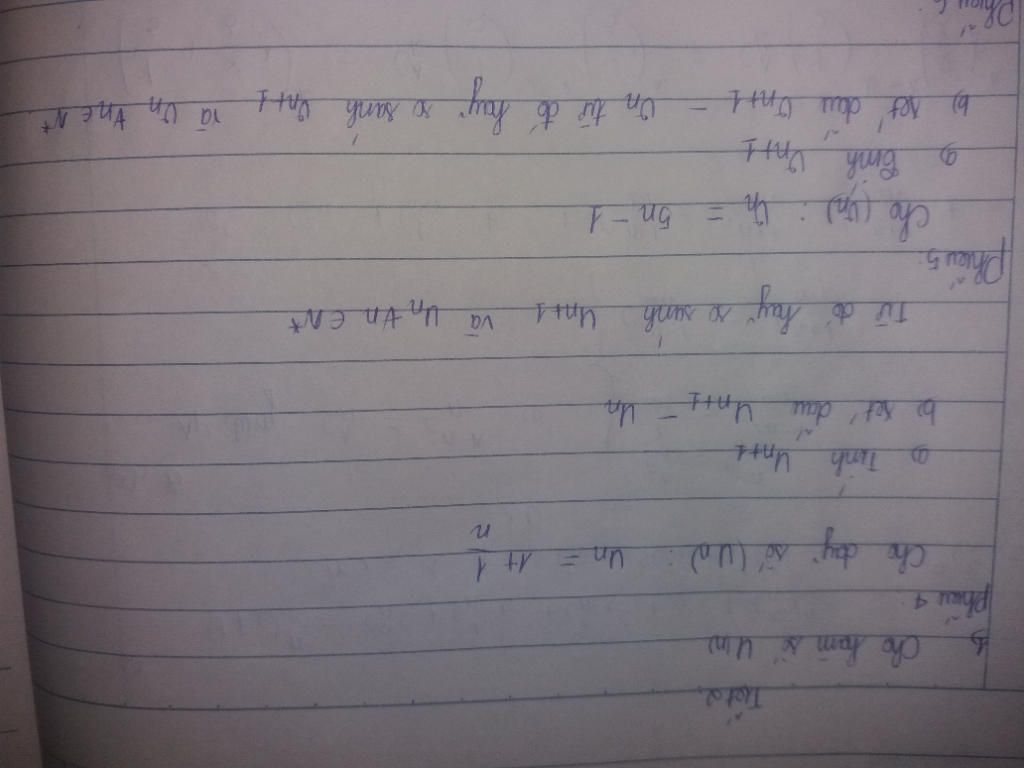 Tiết 2
Cho hàm số u(n)
Phiếu 4:
Cho dãy số (Un): Un = 1 + 1/n
a) Tính Un+1
b) xét dấu Un+1 - Un
Từ đó hãy so sánh Un+1 và Un ∀n ∈ N*
Phiếu 5:
Cho (Vn): Vn = 5n - 1
a) Tính Vn+1
b) xét dấu Vn+1 - Vn từ đó hãy so sánh Vn+1 và Vn ∀n ∈ N*
Phiếu 6: